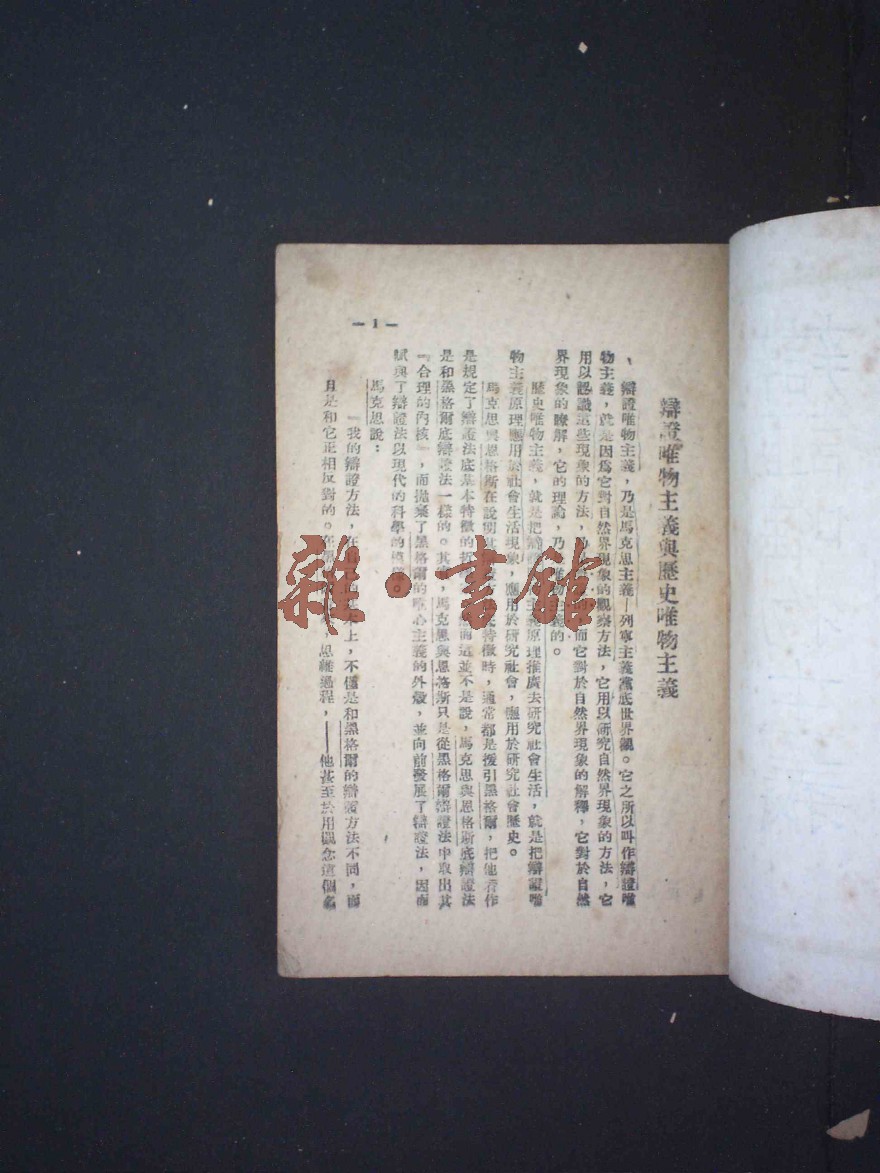 辯證唯物主義與歷史唯物主義
、辯證唯物主義，乃是馬克思主義—列寧主義黨底世界觀。它之所以叫作辯證唯
物主義，就是因爲它對自然界現象的觀察方法，它用以研究自然界現象的方法，它
用以認識這些現象的方法，乃 而它對於自然界現象的解釋，它對於自然
界現象的瞭解，它的理論，乃 唯物主義的。
歷史唯物主義，就是把辯證 主義原理推廣去研究社會生活，就是把辯證唯
物主義原理應用於社會生活現象，應用於研究社會，應用於研究社會歷史。
馬克思與恩格斯在說明 特徵時，通常都是援引黑格爾，把他看作
是規定了辯證法底基本特徵的哲 然而這並不是說，馬克思與恩格斯底辯證法
是和黑格爾底辯證法一樣的。其 馬克思與恩格斯只是從黑格爾辯證法中取出其
『合理的內核』，而拋棄了黑格爾的唯心主義的外殼，並向前發展了辯證法，因而
賦與了辯證法以現代的科學的 。
馬克思說：
『我的辯證方法，在 的 上，不僅是和黑格爾的辯證方法不同，而
且是和它正相反對的。在黑 ，思維過程，——他甚至於用觀念這個名
— 1 —
雜·書館